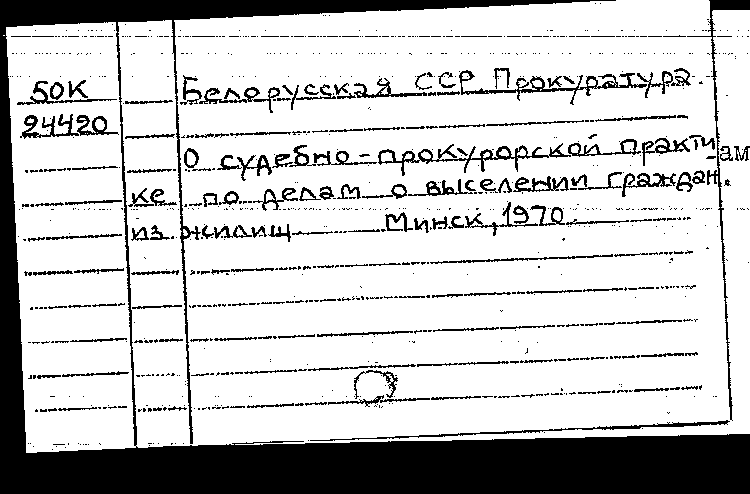 50К Белорусская ССР. Прокуратура.
24420
О судебно-прокурорской практи
ам
ке по делам о выселении граждан.
из жилищ. Минск, 1970.